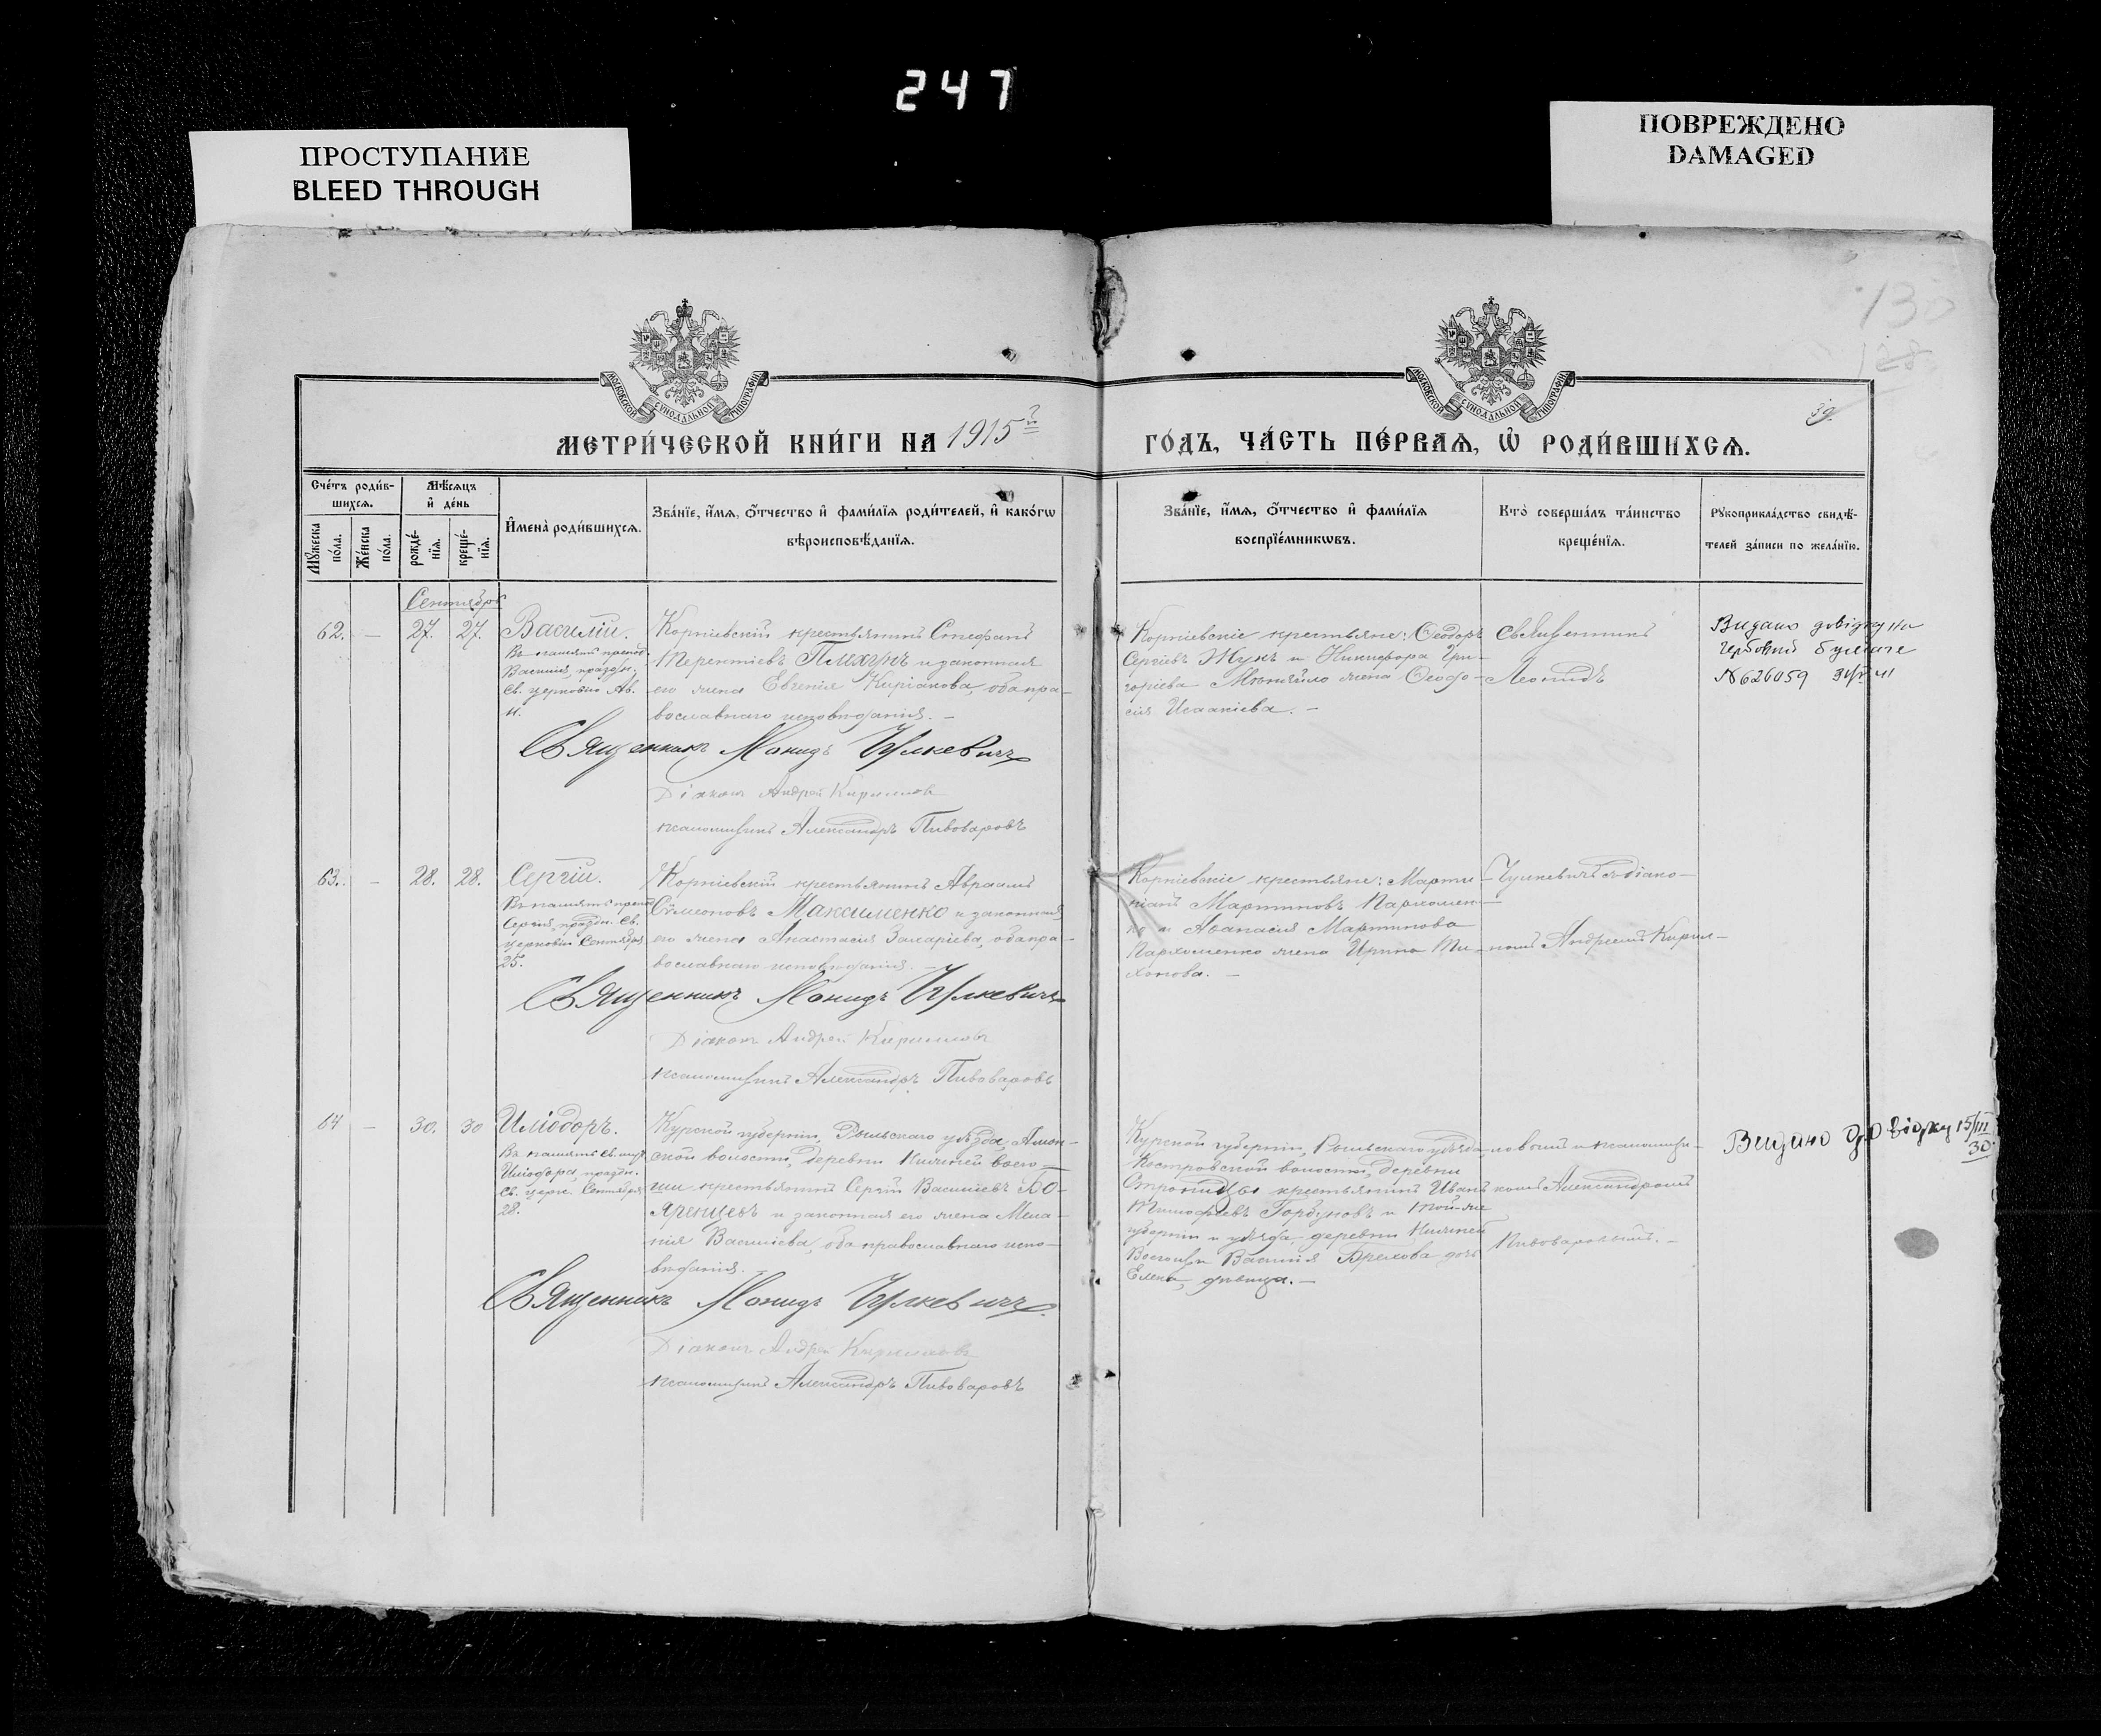 247
ПРОСТУПАНИЕ
BLEED THROUGH
ПОВРЕЖДЕНО
DAMAGED
130
39
МОСКОВСКОЙ СѴНОДАЛЬНОЙ ТИПОГРАФІИ
МОСКОВСКОЙ СѴНОДАЛЬНОЙ ТИПОГРАФІИ
МЕТРИ́ЧЕСКОЙ КНИ́ГИ НА 1915 ГО́ДЪ, ЧА́СТЬ ПЕ́РВАѦ, Ѡ҆ РОДИ́ВШИХСѦ.
Сче́тъ роди́в-
шихсѧ.
Мꙋ́жеска по́ла.
Же́нска по́ла.
Мѣ́сѧцъ
и҆ де́нь
рожде́-
нїѧ.
креще́-
нїѧ.
И҆мена̀ роди́вшихсѧ.
Зва́нїе, и҆́мѧ, ѻ҆́тчество и҆ фами́лїѧ роди́телей, и҆ како́гѡ
вѣроисповѣ́данїѧ.
Зва́нїе, и҆́мѧ, ѻ҆́тчество и҆ фами́лїѧ
воспрїе́мникѡвъ.
Кто̀ соверша́лъ та́инство
креще́нїѧ.
Рꙋкоприкла́дство свидѣ́-
телей за́писи по жела́нїю.
Сентябрь
62. — 27. 27. Василій.
Въ память препод.
Василія, праздн.
св. церковію Ав.
11.
Корніевскій крестьянинъ Стефанъ
Терентіевъ Плехунъ и законная
его жена Евгенія Киріакова, оба пра-
вославнаго исповѣданія. —
Священникъ Леонидъ Чулкевичъ
Діаконъ Андрей Кирилловъ
псаломщикъ Александръ Пивоваровъ
Корніевскіе крестьяне: Ѳеодоръ
Сергіевъ Жукъ и Никифора Гри-
горіева жена Ѳеодо-
сія Исаакіева. —
Священникъ
Леонидъ
Видано довідку на
гербовій бумаге
№ 626059
63. — 28. 28. Сергій.
Въ память преп.
Сергія, праздн. св.
церковію Сентября
25.
Корніевскій крестьянинъ Авраамъ
Сѵмеоновъ Максименко и законная
его жена Анастасія Захаріева, оба пра-
вославнаго исповѣданія. —
Священникъ Леонидъ Чулкевичъ
Діаконъ Андрей Кирилловъ
псаломщикъ Александръ Пивоваровъ
Корніевскіе крестьяне: Марти-
ніанъ Мартиновъ Пархомен-
ко и Аѳанасія Мартинова
Пархоменко жена Ирина Ти-
хонова. —
Чулкевичъ съ діако-
номъ Андреемъ Кирил-
64 — 30. 30 Иліодоръ.
Въ память св. муч.
Иліодора, праздн.
св. церк. Сентября
28.
Курской губерніи, Рыльскаго уѣзда, Амон-
ской волости, деревни Нижней
крестьянинъ Сергій Василіевъ Бо-
яренцевъ и законная его жена Мела-
нія Василіева, оба православнаго испо-
вѣданія.
Священникъ Леонидъ Чулкевичъ.
Діаконъ Андрей Кирилловъ
псаломщикъ Александръ Пивоваровъ
Курской губерніи, Рыльскаго уѣзда
Костровской волости, деревни
крестьянинъ Иванъ
Тимофѣевъ Горбуновъ и той-же
губерніи и уѣзда, деревни Нижней
Василія Брехова дочь
Елена, дѣвица. —
ловымъ и псаломщи-
комъ Александромъ
Пивоваровымъ. —
Видано довідку 15/III
30